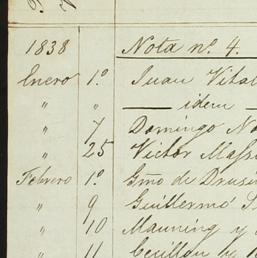 1838 Nota nº. 4.
Enero 1.º Juan Vital
" " — idem —
" 7 Domingo
" 25 Victor
Febrero 1.º Gmo de
" 9 Guillermó
" 10 Manning y
" 11